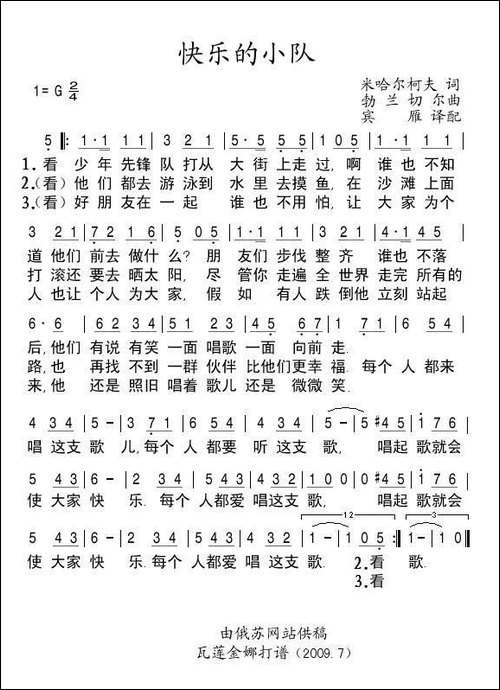 快乐的小队
1=G 2/4
米哈尔柯夫 词
勃兰切尔曲
宾 雁 译配
5 ‖: 1·1 11 | 3 21 | 5·5 5 5 | 105 | 1·1 11 |
1.看 少年先锋 队打从 大街上走过,啊 谁也不知
2.(看)他们都去 游泳到 水里去摸鱼,在 沙滩上面
3.(看)好朋友在一起 谁也不用怕,让 大家为个
3 21 | 7·2 71 | 5 05 | 1·1 11 | 3 21 | 5·5 54 |
道他们 前去做什么? 朋 友们步伐 整齐 谁也不落
打滚还 要去晒太 阳, 尽 管你走遍 全世界 走完所有的
人也让 个人为大家, 假 如 有人跌 倒他 立刻站起
6·6 | 62 34 | 52 13 | 24 35 | 67 71 | 1· 6 | 654 |
后,他们 有说有笑 一面唱歌 一面 向前走.
路,也 再找不到 一群伙伴 比他们更 幸福. 每个人都来
来,他 还是照旧 唱着歌儿 还是 微微笑.
4 34 | 5-| 3 71 | 6 5 | 5 34 | 5-|5 #45 | 1 76 |
唱这支歌儿,每个人都要听这支歌, 唱起歌就会
5 23 | 6-| 6 34 | 5 43 | 543 432 | 100 | 0 #45 | 1 76 |
使大家快乐.每个人都爱唱这支歌, 唱起歌就会
5 23 | 6-| 6 34 | 5 43 | 543 432 | 1-| 105 :‖ 1-| 10 ‖
12
3
使大家快乐.每个人都爱唱这支歌 2.看 歌.
3.看
由俄苏网站供稿
瓦莲金娜打谱(2009.7)